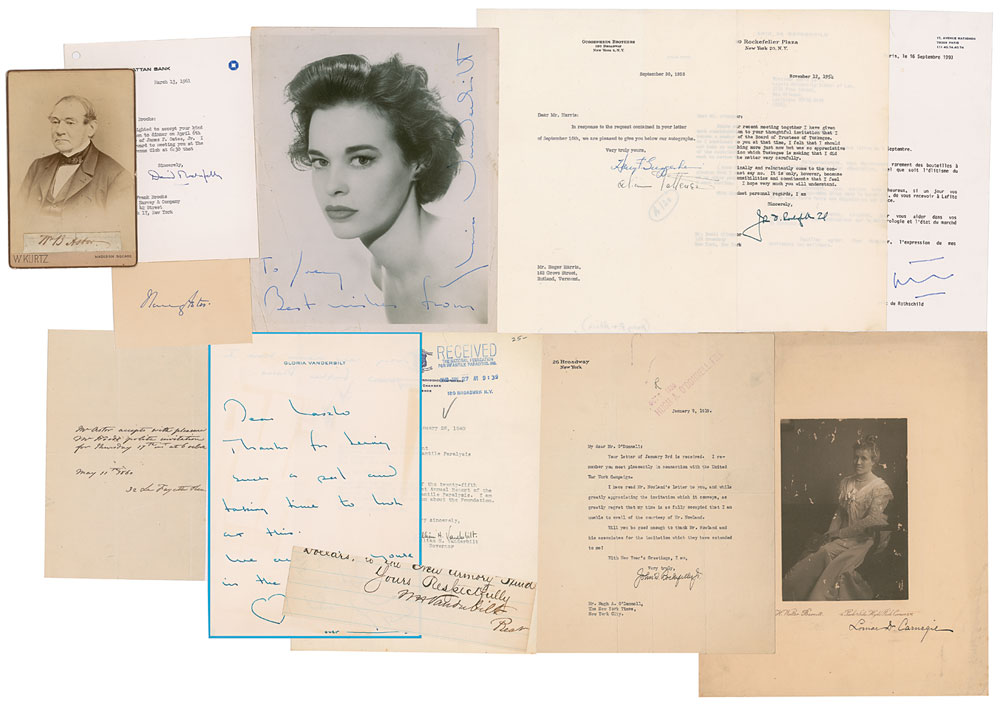 W B Astor
W. KURTZ
MADISON SQUARE
ATTAN BANK
March 13, 1961
Brooks:
ighted to accept your kind
on to dinner on April 6th
of James F. Oates, Jr. I
ward to meeting you at the
at 6:30 that
Sincerely,
David Rockefeller
Frank Brooks
Harvey & Company
Street
k 15, New York
Nancy Astor.
To
Best wishes from
Gloria Vanderbilt
GUGGENHEIM BROTHERS
120 BROADWAY
NEW YORK 5, N.Y.
September 20, 1952
Dear Mr. Harris:
In response to the request contained in your letter
of September 16th, we are pleased to give below our autographs.
Very truly yours,
Harry F. Guggenheim
Mr. Roger Harris,
Grove Street,
Rutland, Vermont.
Rockefeller Plaza
New York 20, N.Y.
November 12, 1954
r recent meeting together I have given
on to your thoughtful invitation that I
of the Board of Trustees of Tuskegee.
o you at that time, I felt that I should
hing more just now but was so appreciative
tion which Tuskegee is making that I did
he matter very carefully.
inally and reluctantly come to the con-
ust say no. It is only, however, because
onsibilities and commitments that I feel
I hope very much you will understand.
mest personal regards, I am
Sincerely,
John D. Rockefeller 3d
17, AVENUE MATIGNON
75008 PARIS
ris, le 16 Septembre 1993
Septembre.
rgement des bouteilles à
que soit l'éditique du
heureux, si un jour vous
de vous recevoir à Lafite
vous aider dans vos
rologie et l'état du marché
l'expression de mes
de Rothschild
Mr Astor accepts with pleasure
Mr polite invitation
for Thursday 17th inst at 6 oclock
May 11th 1860
32 La Fayette Place
GLORIA VANDERBILT
Dear Laszlo
Thanks for being
such a pal and
taking time to look
at this.
in the
over
25-
RECEIVED
THE NATIONAL FOUNDATION
FOR INFANTILE PARALYSIS, INC.
120 BROADWAY N.Y.
ary 26, 1940
ntile Paralysis
of the twenty-fifth
st Annual Record of the
ntile Paralysis. I am
on about the Foundation.
ery sincerely,
William H. Vanderbilt
William H. Vanderbilt
Governor
Dollars, to you Crew Armory Fund
Yours Respectfully
Wm H Vanderbilt
Prest
26 Broadway
New York
January 9, 1919.
My dear Mr. O'Donnell:
Your letter of January 3rd is received. I re-
member you most pleasantly in connection with the United
War Work Campaign.
I have read Mr. Howland's letter to you, and while
greatly appreciating the invitation which it conveys, am
greatly regret that my time is so fully occupied that I am
unable to avail of the courtesy of Mr. Howland.
Will you be good enough to thank Mr. Howland and
his associates for the invitation which they have extended
to me?
With New Year's Greetings, I am,
Very truly,
John D. Rockefeller Jr.
Mr. Hugh A. O'Donnell,
The New York Times,
New York City.
Louise W. Carnegie